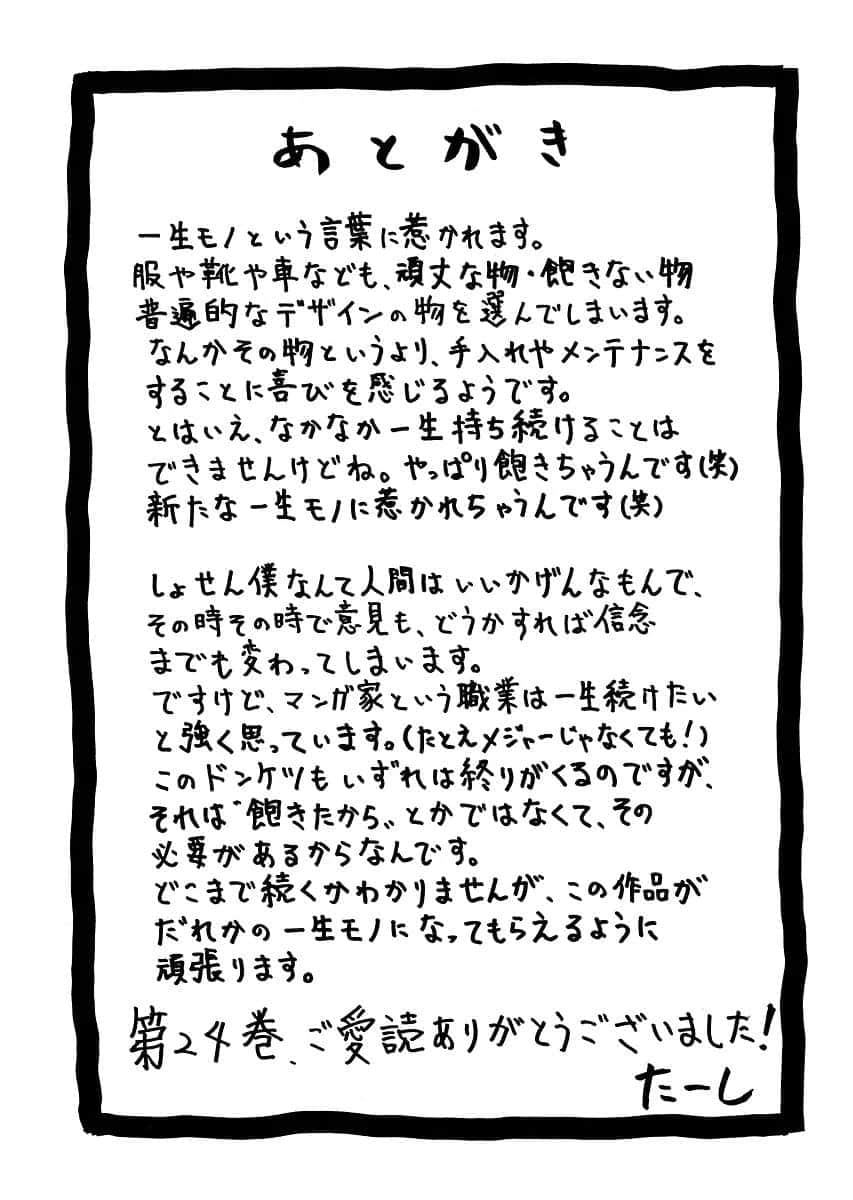 あとがき
一生モノという言葉に惹かれます。
服や靴や車なども、頑丈な物・飽きない物
普遍的なデザインの物を選んでしまいます。
なんかその物というより、手入れやメンテナンスを
することに喜びを感じるようです。
とはいえ、なかなか一生持ち続けることは
できませんけどね。やっぱり飽きちゃうんです(笑)
新たな一生モノに惹かれちゃうんです(笑)
しょせん僕なんて人間はいいかげんなもんで、
その時その時で意見も、どうかすれば信念
までも変わってしまいます。
ですけど、マンガ家という職業は一生続けたい
と強く思っています。(たとえメジャーじゃなくても!)
このドンケツもいずれは終りがくるのですが、
それは〝飽きたから〟とかではなくて、その
必要があるからなんです。
どこまで続くかわかりませんが、この作品が
だれかの一生モノになってもらえるように
頑張ります。
第24巻、ご愛読ありがとうございました!
たーし